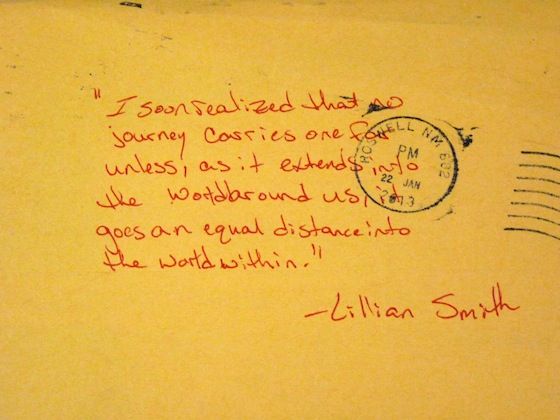 "I soon realized that no
journey carries one far
unless, as it extends into
the world around us, it
goes an equal distance into
the world within."
-Lillian Smith
ROSWELL NM 882
PM
22 JAN
2013